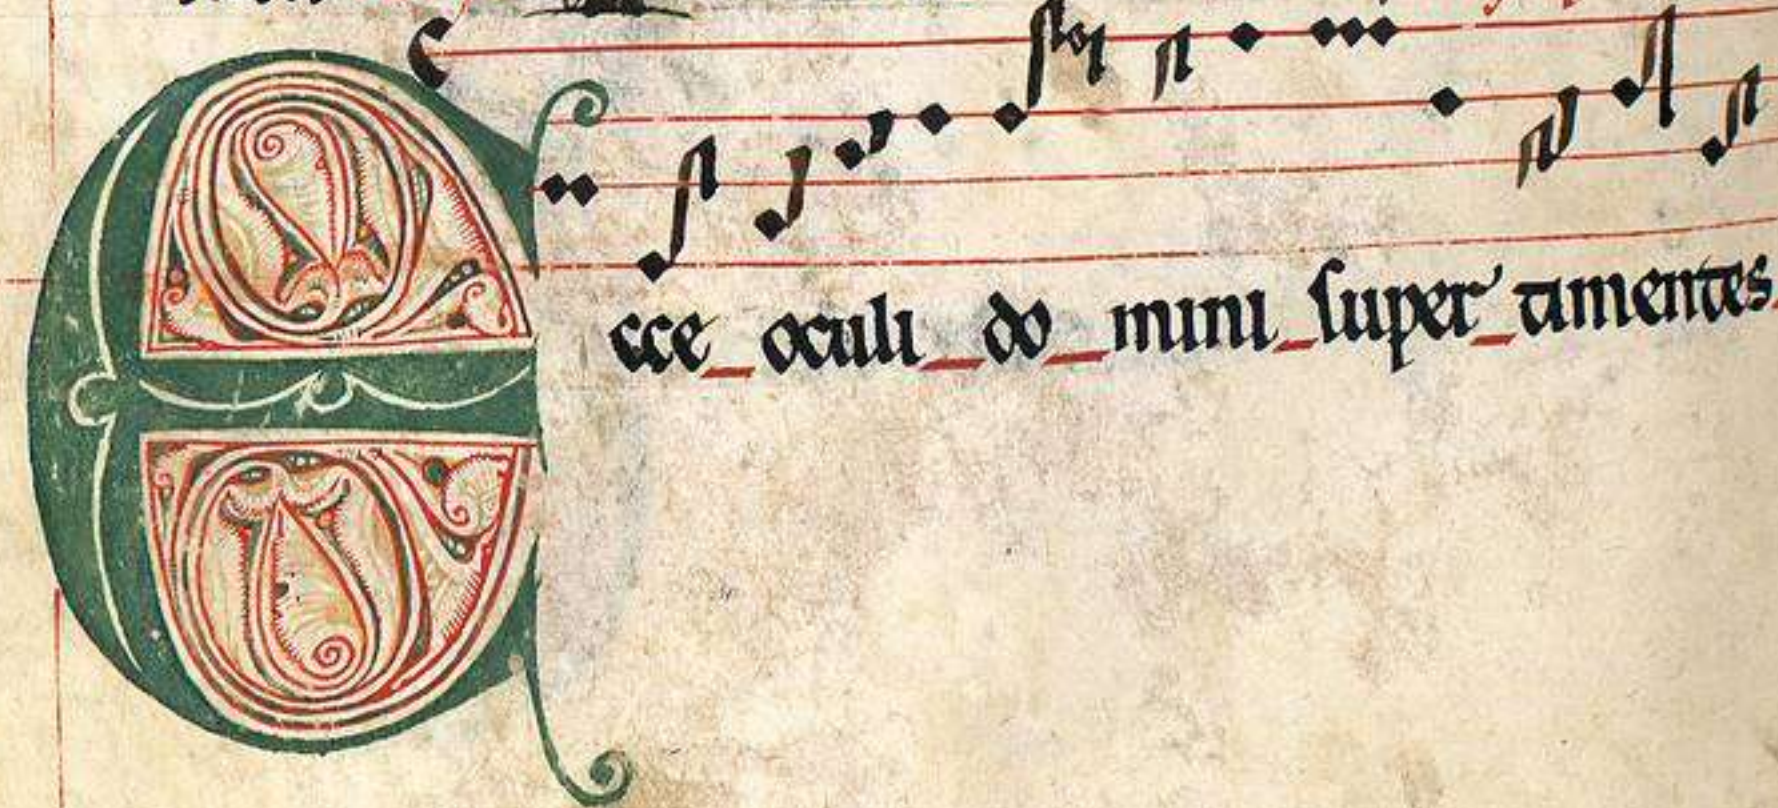 Ecce oculi domini super timentes